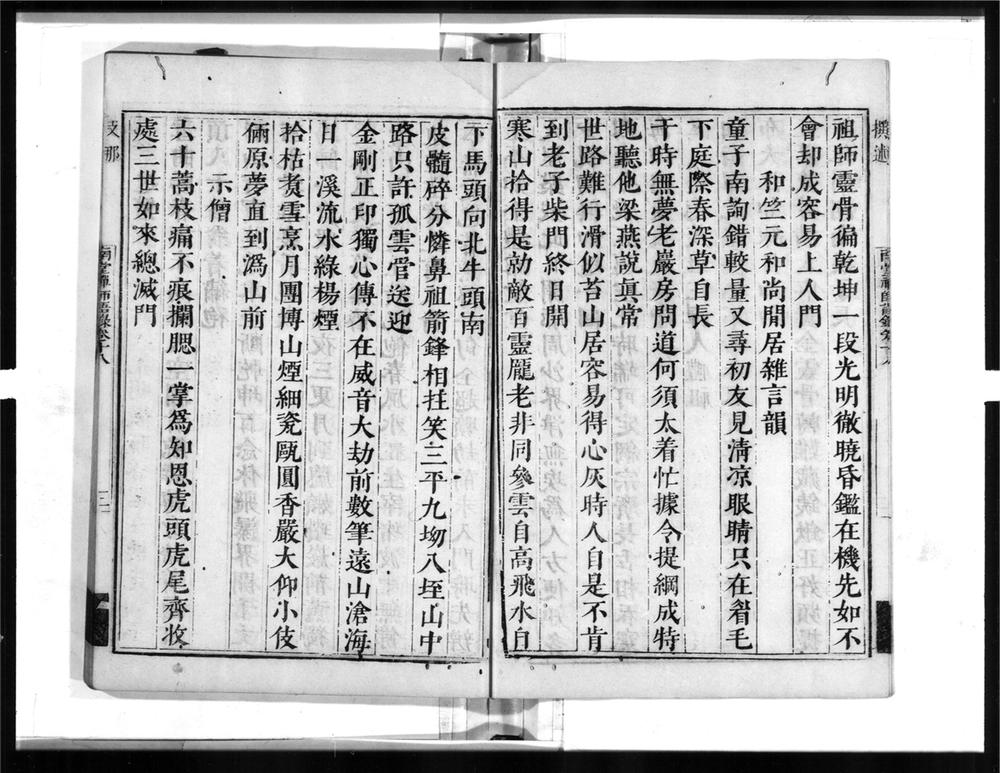 祖師靈骨徧乾坤一段光明徹曉昏鑑在機先如不
會却成容易上人門
和竺元和尚閒居雜言韻
童子南詢錯較量又尋初友見清凉眼睛只在眉毛
下庭際春深草自長
干時無夢老巖房問道何須太着忙據令提綱成特
地聽他梁燕說眞常
世路難行滑似苔山居容易得心灰時人自是不肯
到老子柴門終日開
寒山拾得是勍敵百靈龐老非同參雲自高飛水自
下馬頭向北牛頭南
皮髓碎分憐鼻祖箭鋒相拄笑三平九坳八垤山中
路只許孤雲管送迎
金剛正印獨心傳不在威音大劫前數筆遠山滄海
日一溪流水綠楊煙
拾枯煑雪烹月團博山煙細瓷甌圓香嚴大仰小伎
倆原夢直到溈山前
示僧
六十蒿枝痛不痕攔腮一掌爲知恩虎頭虎尾齊收
處三世如來總滅門
支那
南堂禪師語錄卷十八
三